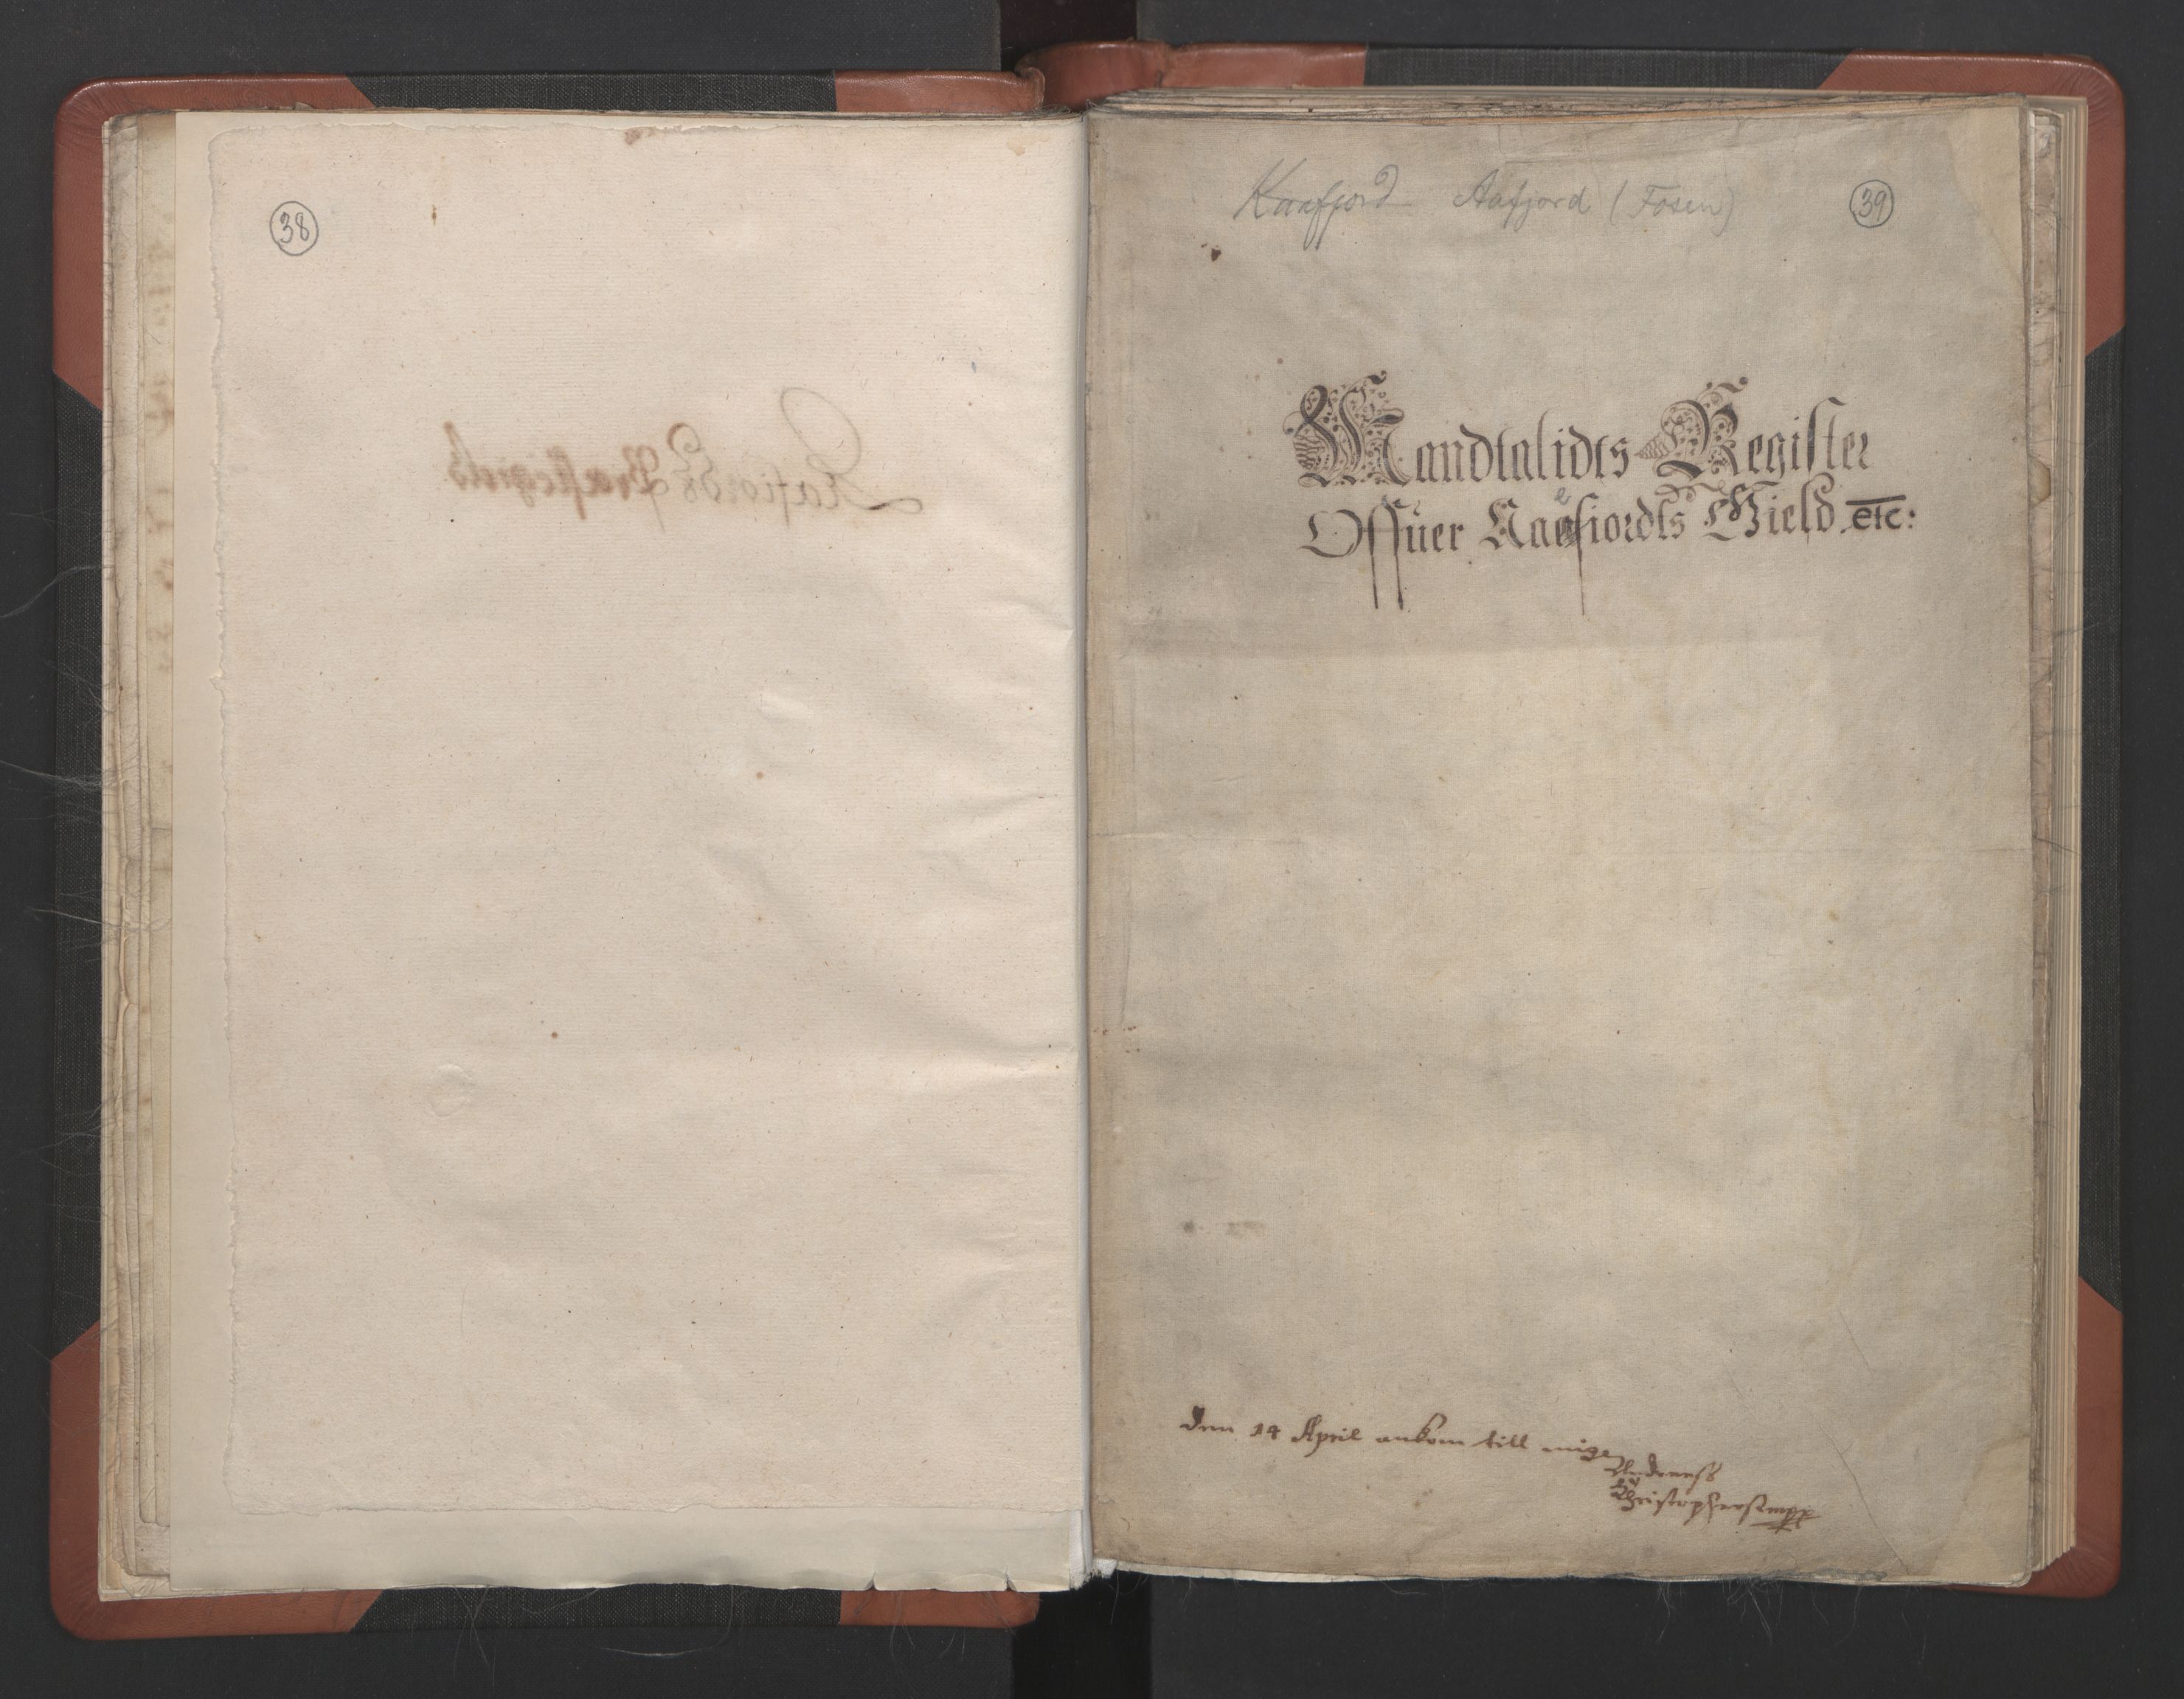 38
Kaafjord Aafjord (Fosen)
39
Mandtalidts Register
Offuer Aaefiordts Gield etc:
Den 14 April ankom till mige
Andreass
Christophersen mpp